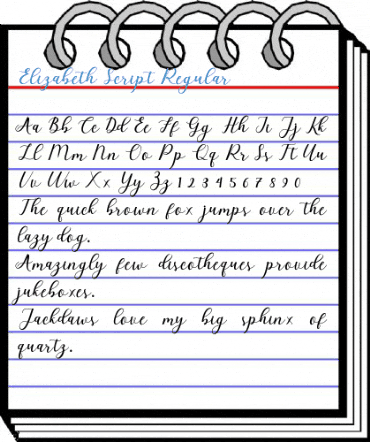 Elizabeth Script Regular
Aa Bb Cc Dd Ee Ff Gg Hh Ii Jj Kk
Ll Mm Nn Oo Pp Qq Rr Ss Tt Uu
Vv Ww Xx Yy Zz 1 2 3 4 5 6 7 8 9 0
The quick brown fox jumps over the
lazy dog.
Amazingly few discotheques provide
jukeboxes.
Jackdaws love my big sphinx of
quartz.